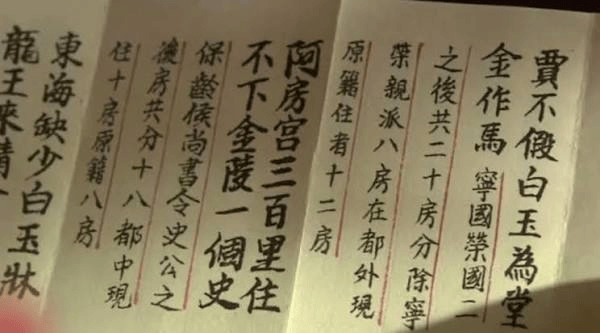 賈不假白玉為堂
金作馬 寧國榮國二
之後共二十房分除寧
榮親派八房在都外現
原籍住者十二房
阿房宮三百里住
不下金陵一個史
保齡候尚書令史公之
後房共分十八都中現
住十房原籍八房
東海缺少白玉牀
龍王來請